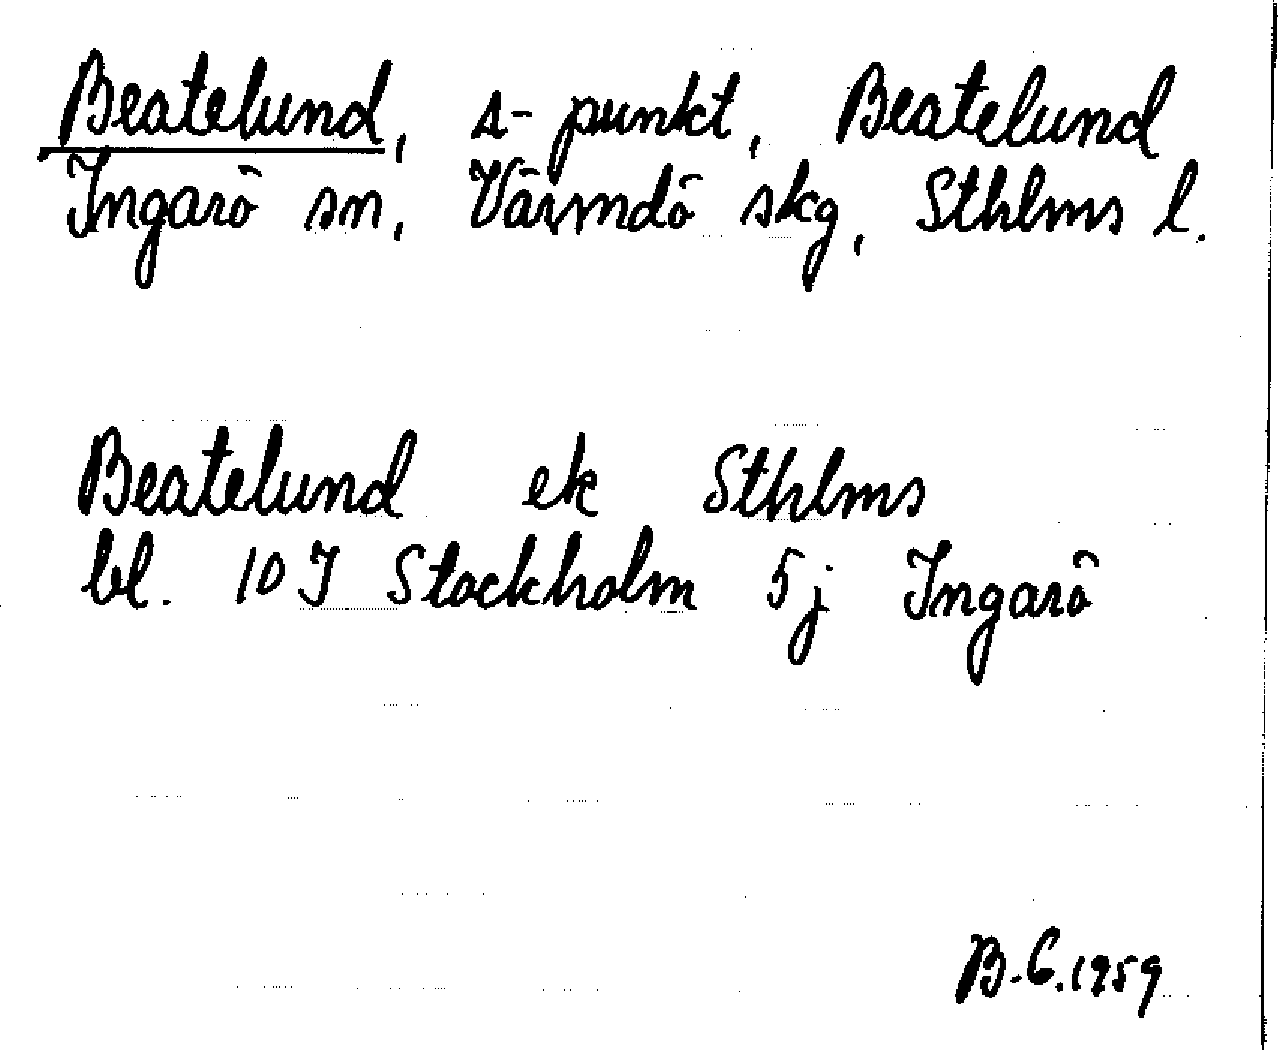 Beatelund, s-punkt, Beatelund
Ingarö sn, Värmdö skg, Sthlms l.
Beatelund ek Sthlms
bl. 10 J Stockholm 5j Ingarö
B.G. 1959